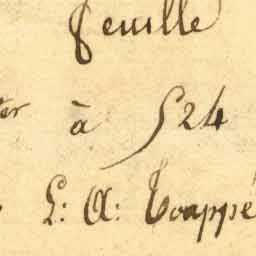 feuille
ter à 524
L: A: Toappé